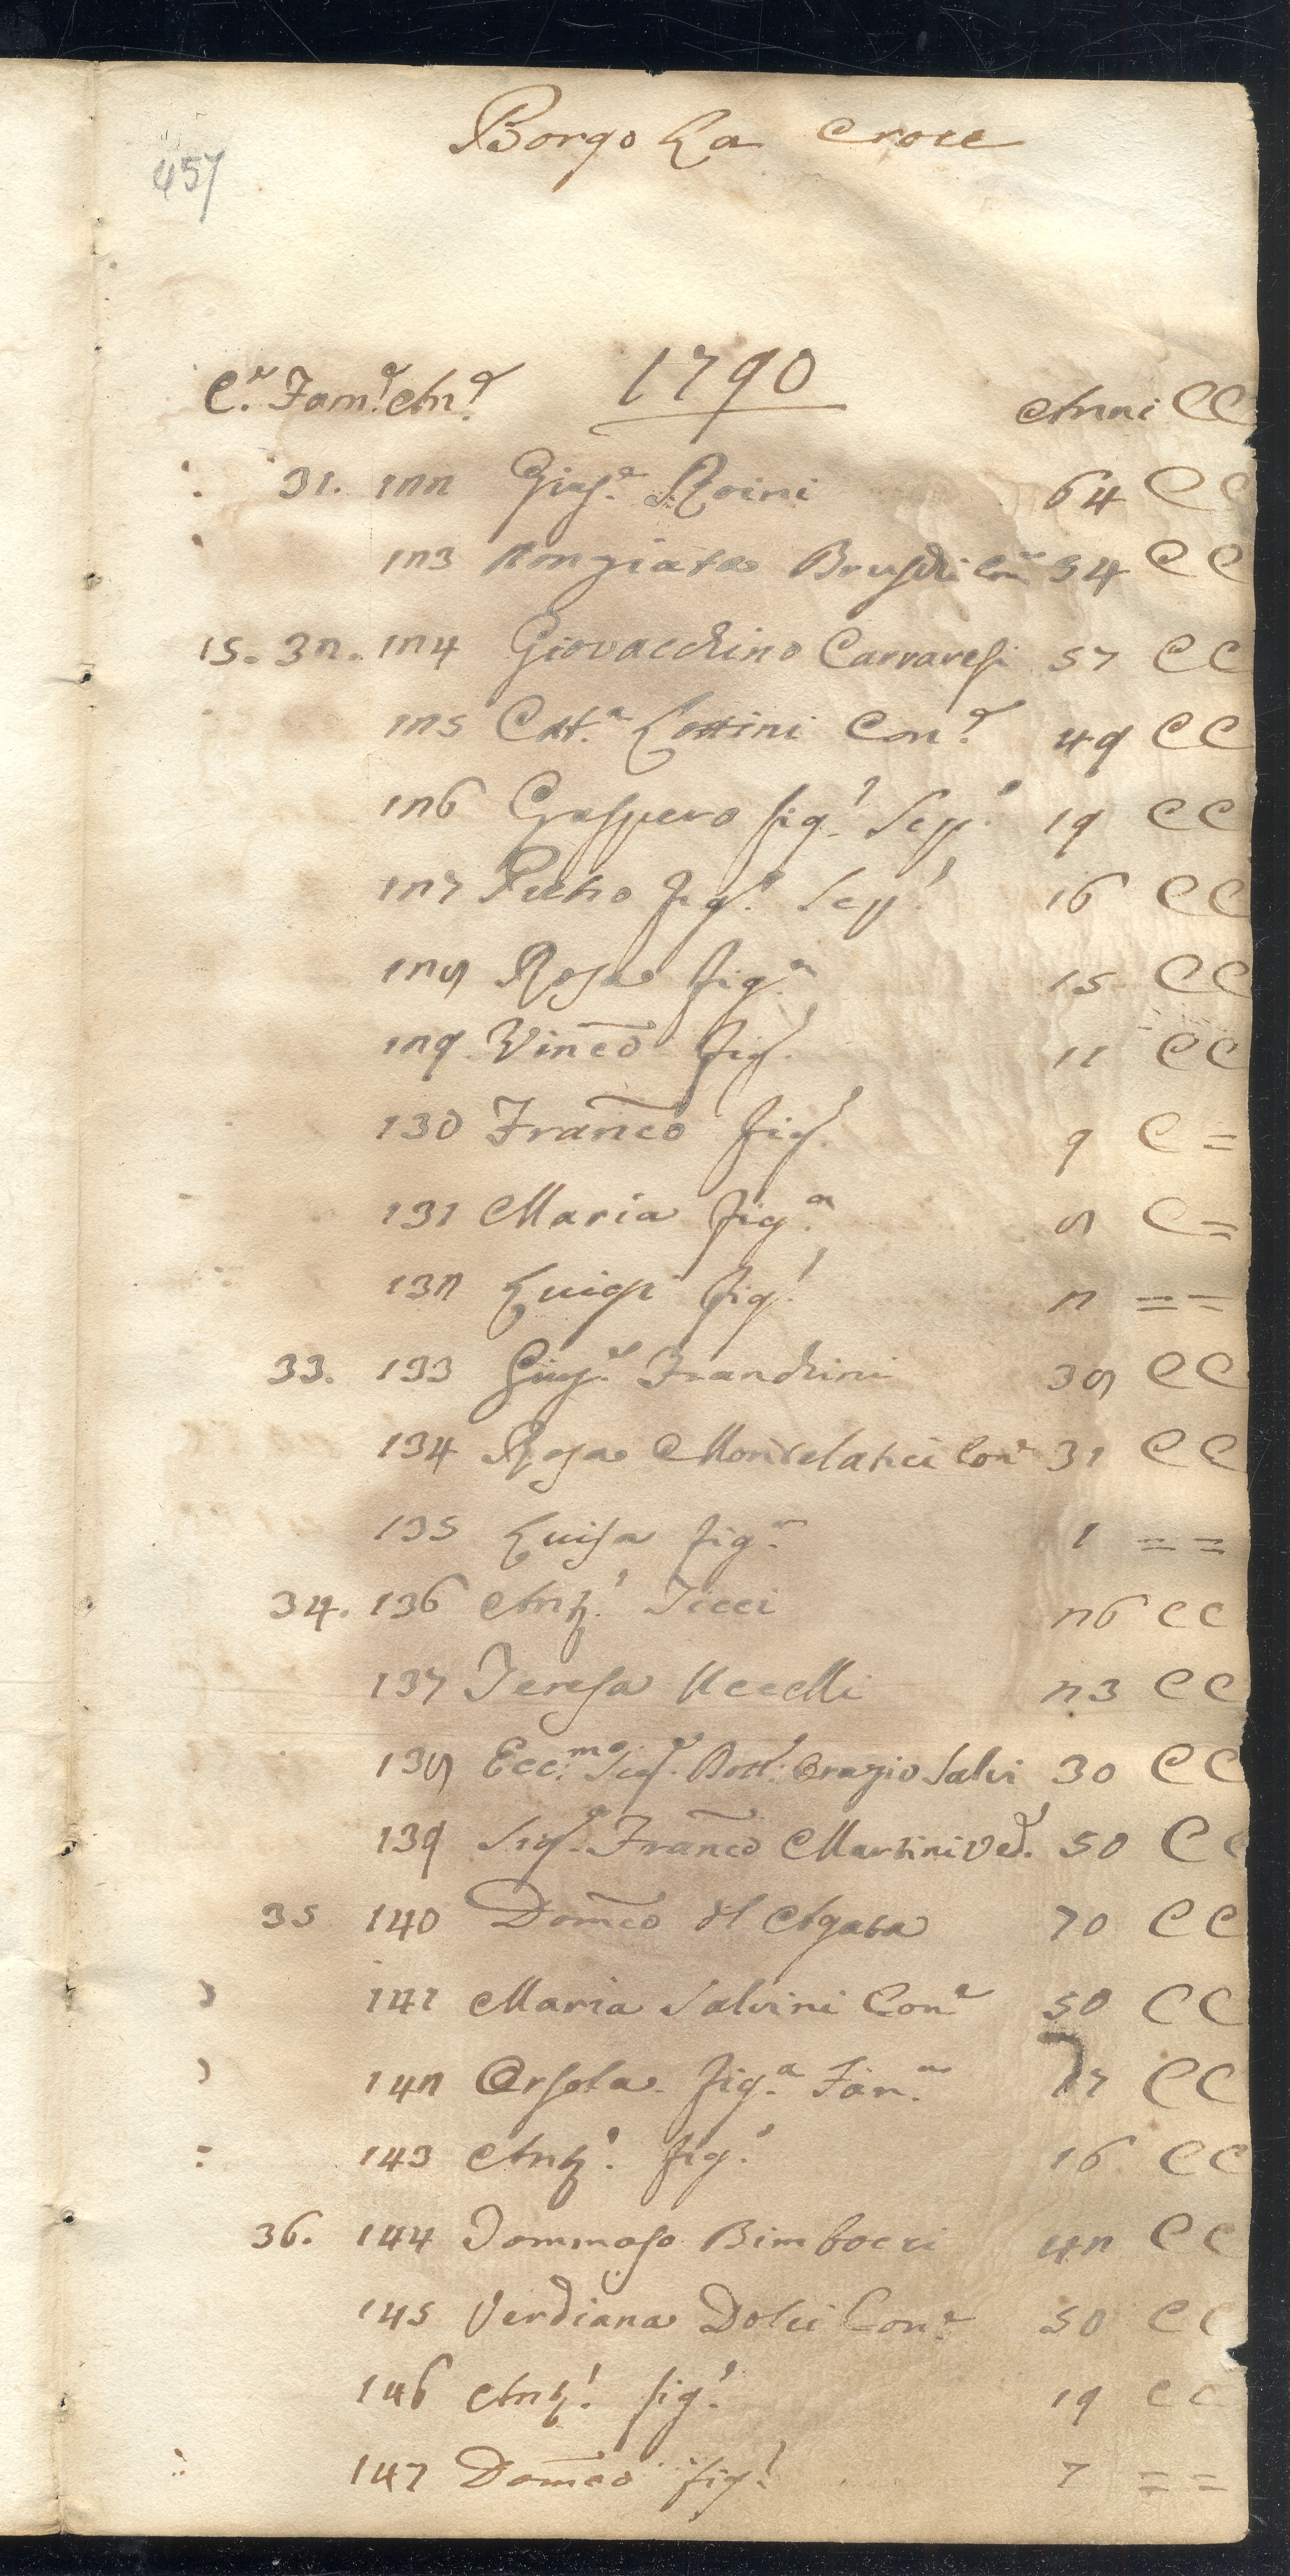 457
Borgo La Croce
1790
C.e Fam.e An.e Anni CC
31. 122 Gius.e Roini 64 C C
123 Anonziata Bruschi Con.e 54 C C
15. 32. 124 Giovacchino Carraresi 57 C C
125 Catt.a Lottini Con.e 49 C C
126 Gaspero fig.o Sepp.o 19 C C
127 Pietro fig.o Sepp.o 16 C C
128 Rosa fig.a 15 C C
129 Vinc͠o fig.o 11 C C
130 Franc͠o fig.o 9 C =
131 Maria fig.a 8 C =
132 Luigi fig.o 2 = =
33. 133 Gius.e Franchini 38 C C
134 Rosa Montelatici Con.e 31 C C
135 Luisa fig.a 1 = =
34. 136 Ant.o Ticci 26 C C
137 Teresa Uccelli 23 C C
138 Ecc.mo Sig.e Dott.e Orazio Salvi 30 C C
139 Sig.e Franc͠o Martini Ved.o 50 C C
35 140 Dom͠co del Agata 70 C C
141 Maria Salvini Con.e 50 C C
142 Orsola fig.a Fan.a 17 C C
143 Ant.o fig.o 16 C C
36. 144 Tommaso Bimbocci 42 C C
145 Verdiana Dolci Con.e 50 C C
146 Ant.o fig.o 19 C C
147 Dom͠co fig.o 7 = =